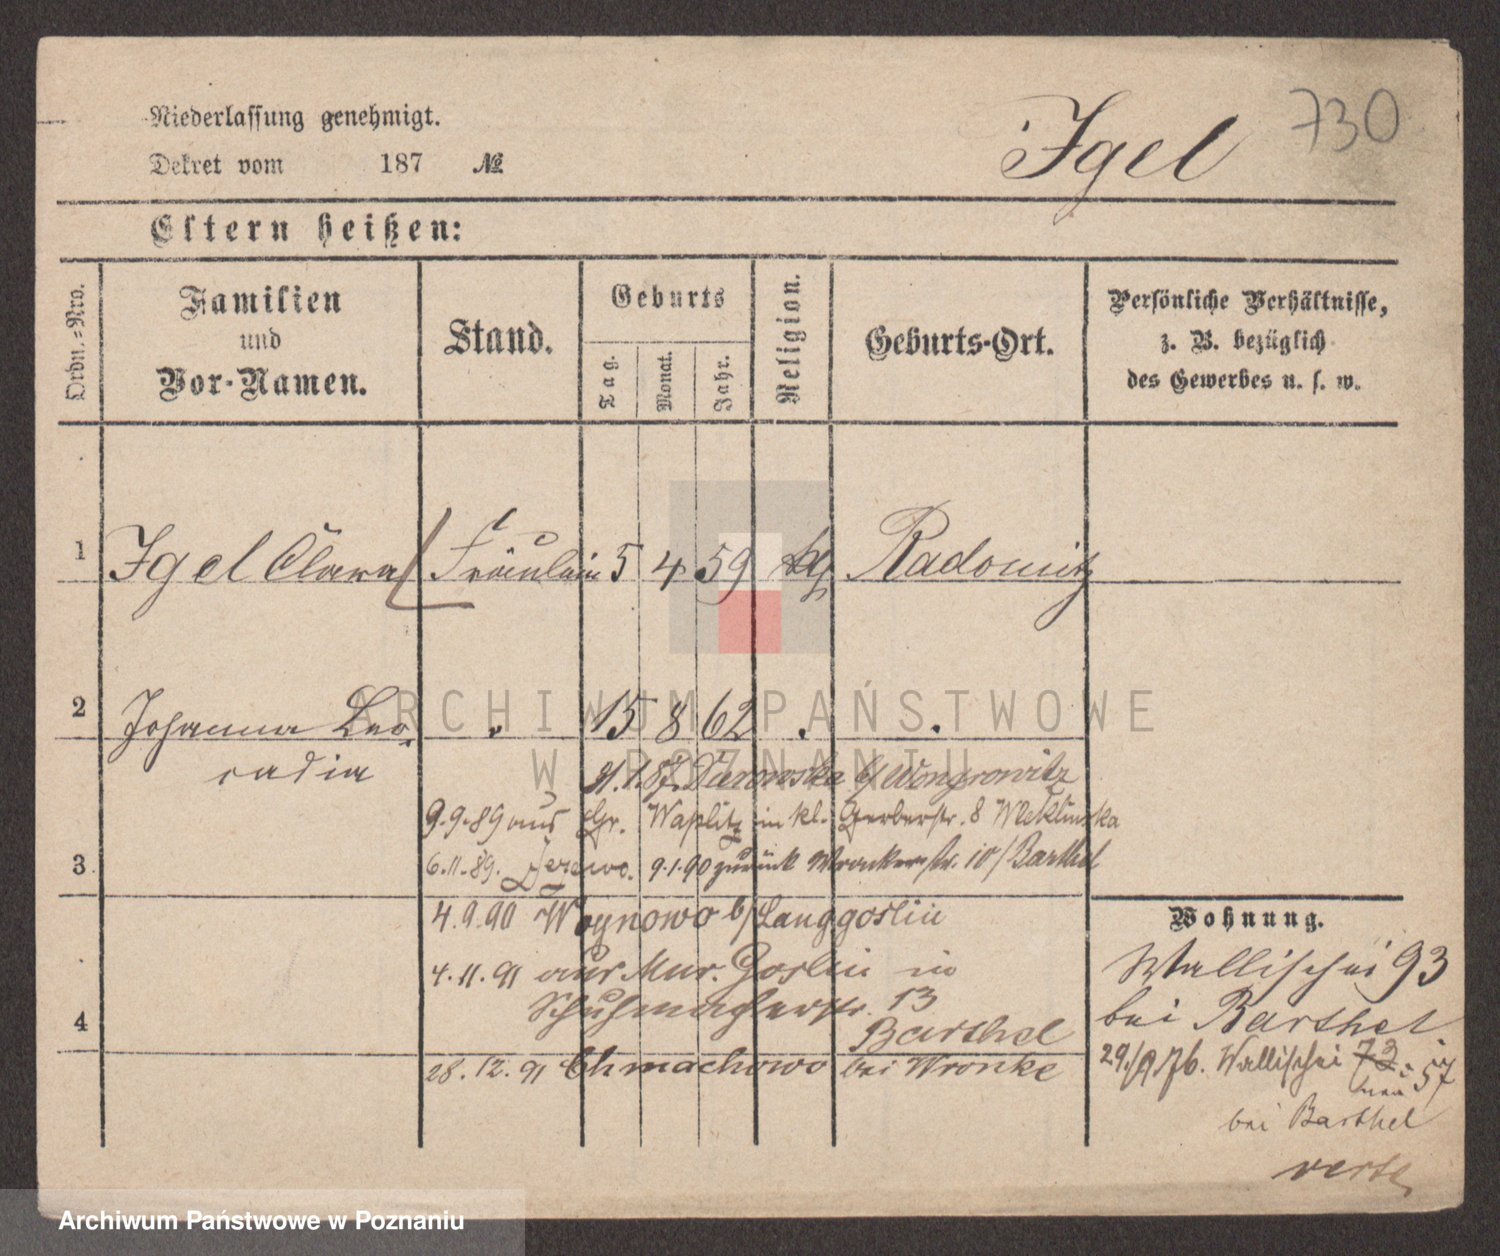 Niederlassung genehmigt.
Dekret vom 187 №
Igel 730
Eltern heißen:
Ordn.-Nro.
Familien
und
Vor-Namen.
Stand.
Geburts
Tag.
Monat.
Jahr.
Religion.
Geburts-Ort.
Persönliche Verhältnisse,
z. B. bezüglich
des Gewerbes u. s. w.
1 Igel Clara Fräulein 5 4 59 Radomitz
2 Johanna Leo- " 15 8 62 " "
radia
1.87. b/ Wongrowitz
9.9.89 aus Gr. Waplitz in kl. Gerberstr. 8
3 6.11.89. 9.1.90 zurück Wronkerstr. 10/Barthel
4.9.90 Woynowo b/Langgoslin
4.11.91 aus Mur. Goslin in
Schuhmacherstr. 13
4 Barthel
28.12.91 Chmachowo bei Wronke
Wohnung.
Wallischei 93
bei Barthel
29./9.76. Wallischei 73.
neu 57
bei Barthel
verte
ARCHIWUM PAŃSTWOWE
W POZNANIU
Archiwum Państwowe w Poznaniu